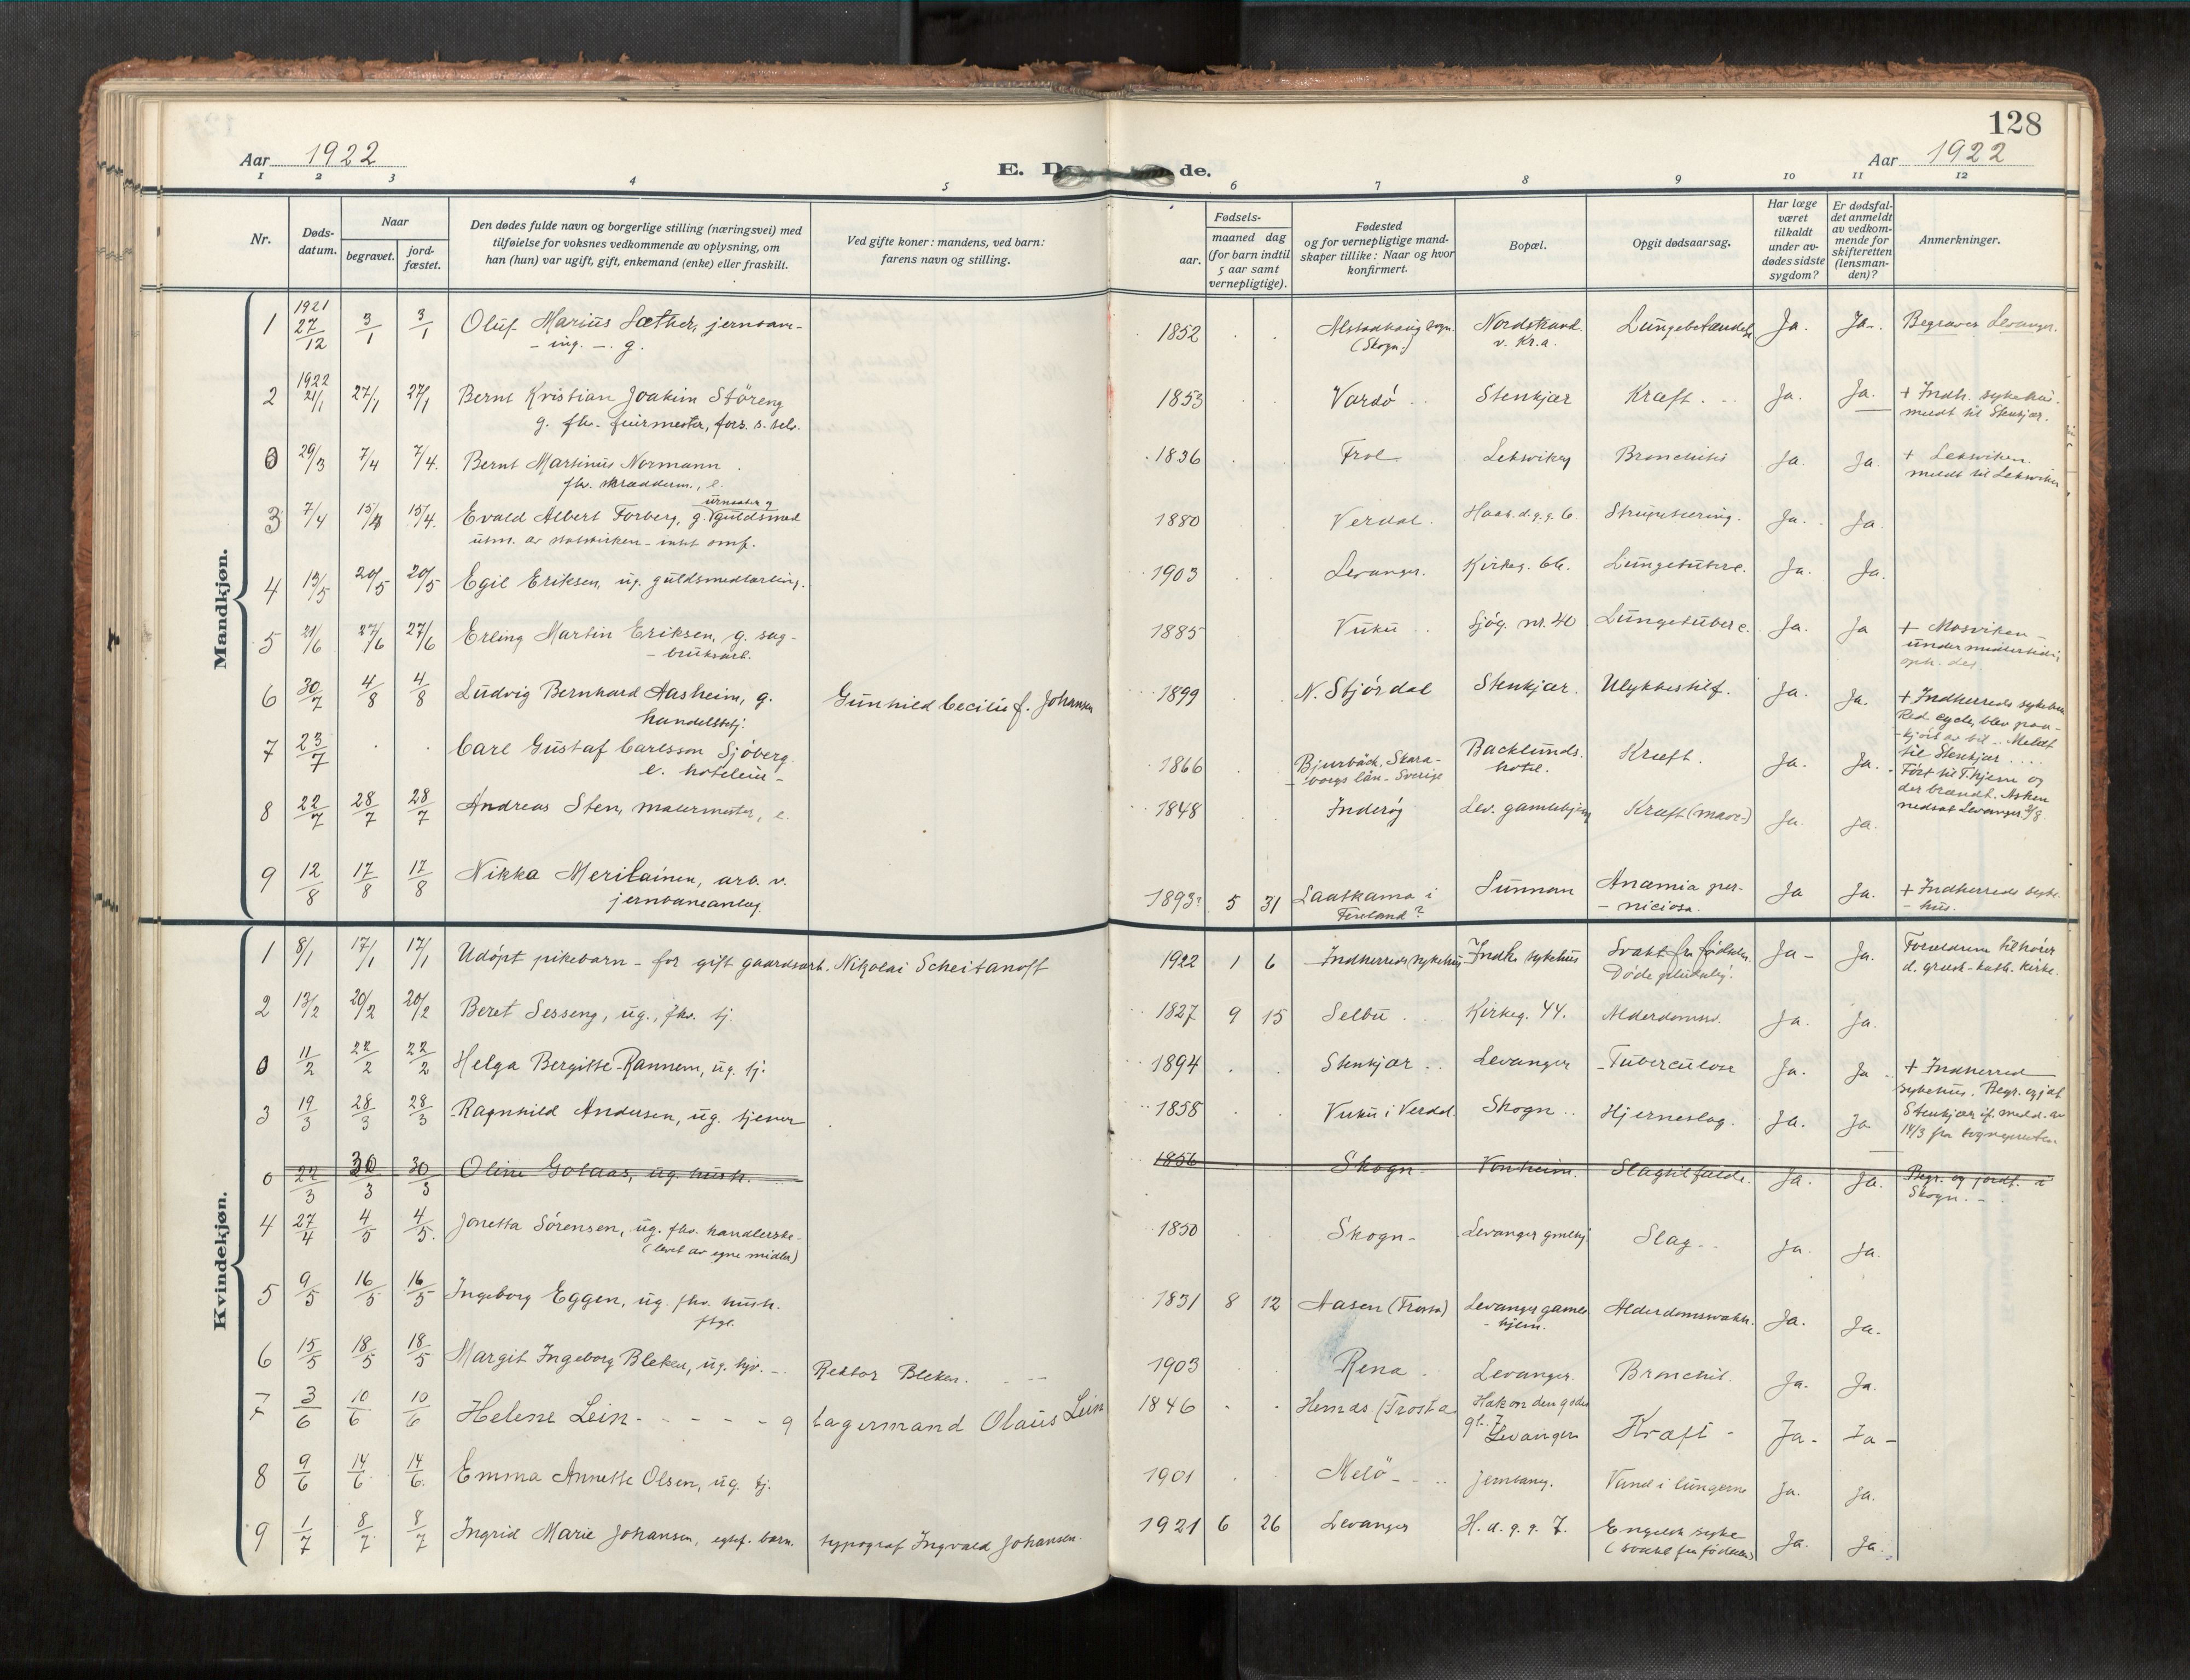 128
Aar 1922
E. D de.
Aar 1922
1 2 3 4 5 6 7 8 9 10 11 12
Nr.
Døds-
datum.
Naar
begravet.
jord-
fæstet.
Den dødes fulde navn og borgerlige stilling (næringsvei) med
tilføielse for voksnes vedkommende av oplysning, om
han (hun) var ugift, gift, enkemand (enke) eller fraskilt.
Ved gifte koner: mandens, ved barn:
farens navn og stilling.
Fødsels-
aar.
maaned dag
(for barn indtil
5 aar samt
vernepligtige).
Fødested
og for vernepligtige mand-
skaper tillike: Naar og hvor
konfirmert.
Bopæl.
Opgit dødsaarsag.
Har læge
været
tilkaldt
under av-
dødes sidste
sygdom?
Er dødsfal-
det anmeldt
av vedkom-
mende for
skifteretten
(lensman-
den)?
Anmerkninger.
Mandkjøn.
1 1921 27/12 3/1 3/1 Oluf Marius Sæther, jernvare-
- ing. - g. 1852 Alstadhaug sogn. (Skogn.) Nordstrand v. Kr.a. Lungebetændelse Ja. Ja. Begraves Levanger.
2 1922 21/1 27/1 27/1 Bernt Kristian Joakim Störeng
g. fhv. feiermester, fors. s. selv. 1853 Vardö Stenkjær Kræft. Ja. Ja. + Indh. sykehus.
meldt til Stenkjær.
0 29/3 7/4 7/4. Bernt Martinus Normann
fhv. skrædderm., e. 1836 Frol Leksviken Bronchitis Ja. Ja. + Leksviken.
meldt til Leksviken
3 7/4 15/4 15/4. Evald Albert Forberg, g. urmaker og guldsmed
utm. av statskirken - intet omf. 1880 Verdal. Haak. d. g. g. 6. Strupetæring. Ja. Ja.
4 13/5 20/5 20/5 Egil Eriksen, ug. guldsmedlærling. 1903 Levanger. Kirkeg. 66. Lungetuberc. Ja. Ja.
5 21/6 27/6 27/6 Erling Martin Eriksen, g. sag-
- bruksarb. 1885 Vuku Sjög. nr. 40 Lungetuberc. Ja. Ja + Mosviken -
under midlertidig
oph. der.
6 30/7 4/8 4/8 Ludvig Bernhard Aasheim, g.
handelsbetj. Gunhild Cecilie f. Johansen 1899 N. Stjördal Stenkjær. Ulykkestilf. Ja. Ja. + Indherreds sykehus
Red cycle, blev paa-
kjört av bil. Meldt
til Stenkjær
7 23/7 Carl Gustaf Carlsson Sjöberg
e. hoteleier - 1866 Bjurbäck, Skara-
- borgs län - Sverige Backlunds hotel. Kræft. Ja. Ja. Fört til T.hjem og
der brændt. Asken
nedsat Levanger
8 22/7 28/7 28/7 Andreas Sten, malermester, e. 1848 Inderöy Lev. gamlehjem Kræft (mave-) Ja. Ja.
9 12/8 17/8 17/8 Nikka Merilainen, arb. v.
jernbaneanlæg. 1893? 5 31 Laatkama i
Finland? Sunnan Anæmia per-
- niciosa. Ja Ja. + Indherreds syke-
- hus.
Kvindekjøn.
1 8/1 17/1 17/1 Udöpt pikebarn - for gift gaardsarb. Nikolai Scheitanoff 1922 1 6 Indherreds sykehus Indh. sykehus Svakt fra födselen.
Döde pludselig. Ja - Ja. Forældrene tilhörer
d. græsk-kath. kirke.
2 13/2 20/2 20/2 Beret Sesseng, ug., fhv. tj. 1827 9 15 Selbu Kirkeg. 44. Alderdomssv. Ja. Ja.
0 11/2 22/2 22/2 Helga Bergitte Rannem, ug. tj. 1894 Stenkjær Levanger Tuberculose Ja. Ja. + Indherred
sykehus. Begr. og jdf.
Stenkjær if. medd. av
14/3 fra sognepresten
3 19/3 28/3 28/3 Ragnhild Andersen, ug. tjener 1858 Vuku i Verdal. Skogn Hjerneslag. Ja. Ja
0 22/3 30/3 30/3 Oline Golaas, ug. hush. 1856 Skogn Vonheim. Slagtilfælde. Ja. Ja. Begr. og jordf. i
Skogn. -
4 27/4 4/5 4/5. Jonetta Sörensen, ug. fhv. handlerske-
(levet av egne midler) 1850 Skogn - Levanger gmlehj. Slag Ja. Ja.
5 9/5 16/5 16/5 Ingeborg Eggen, ug. fhv. hush.
ftgl. 1831 8 12 Aasen (Frosta) Levanger gamle-
- hjem. Alderdomssvakh. Ja. Ja.
6 15/5 18/5 18/5 Margit Ingeborg Bleken, ug. hjv. - Rektor Bleken. 1903 Rena Levanger. Bronchit. Ja. Ja.
7 3/6 10/6 10/6 Helene Lein - - - - g Lagermand Olaus Lein 1846 Hernds. (Frosta Hakon den godes
gt. 7 Levanger Kræft - Ja - Ja -
8 9/6 14/6 14/6. Emma Annette Olsen, ug. tj. 1901 Melö - Jernbaneg. Vand i lungerne Ja. Ja.
9 1/7 8/7 8/7 Ingrid Marie Johansen, egtef. barn. typograf Ingvald Johansen. 1921 6 26 Levanger H. d. g. g. 7. Engelsk syke
(svakel fra födselen) Ja. Ja.